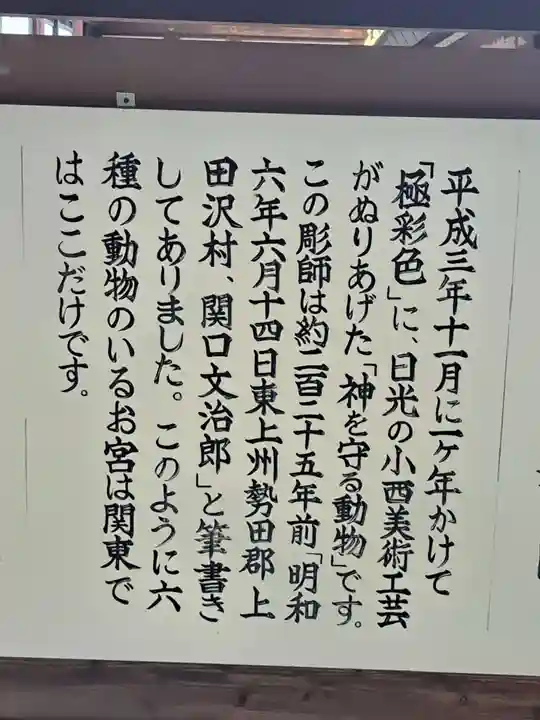 平成三年十一月に一ヶ年かけて
「極彩色」に、日光の小西美術工芸
がぬりあげた「神を守る動物」です。
この彫師は約二百二十五年前「明和
六年六月十四日東上州勢田郡上
田沢村、関口文治郎」と筆書き
してありました。このように六
種の動物のいるお宮は関東で
はここだけです。